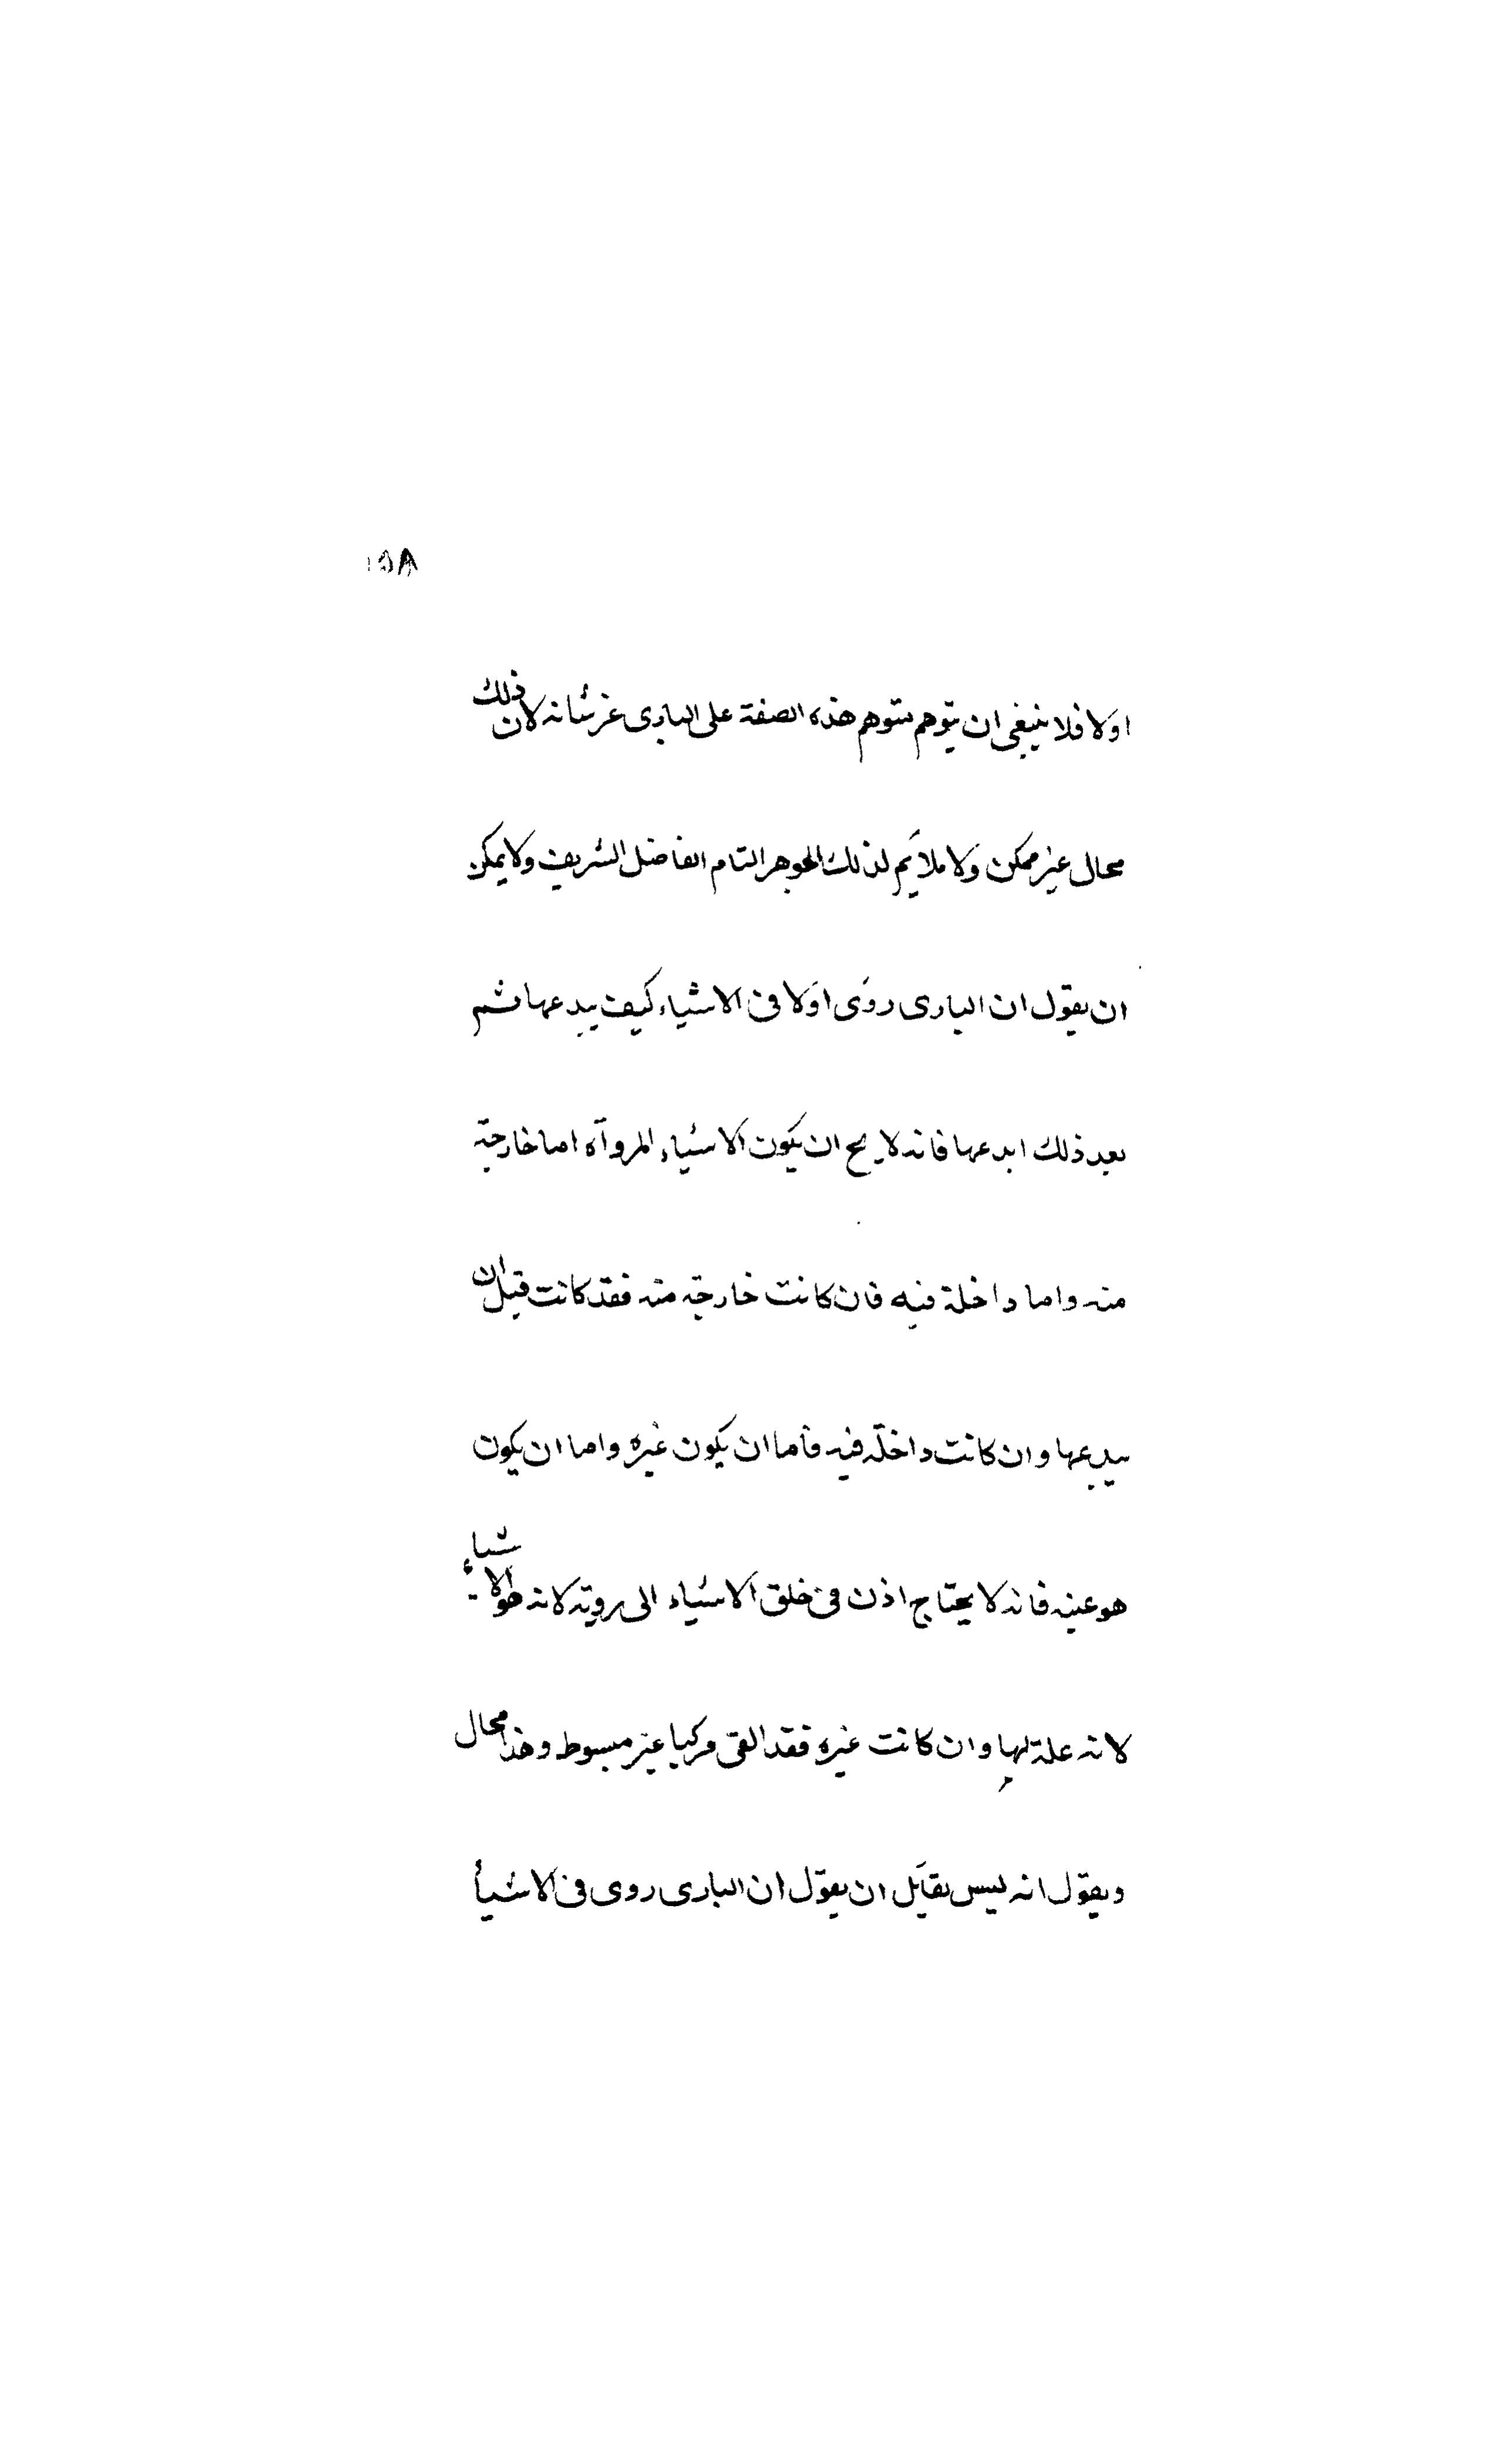 ١٥٨
اولا فلا ينبغى ان يتوهم متوهم هذه الصفة على البارى عز شانه لان ذلك
محال غير ممكن ولا ملايم لذلك الجوهر التام الفاضل الشريف ولا يمكن
ان يقول ان البارى روى اولا فى الاشياء كيف يبدعها ثم
بعد ذلك ابدعها فانه لا يصح ان يكون الاشياء المروآه اما خارجة
منه واما داخلة فيه فان كانت خارجة منه فقد كانت قبل ان
يبدعها وان كانت داخلة فيه فاما ان يكون غيره واما ان يكون
هو عينه فانه لا يحتاج اذن فى خلق الاشياء الى روية لانه هو الاشياء
لانه علة لها وان كانت غيره فقد القى مركبا غير مبسوط وهذا محال
ويقول انه ليس بقايل ان يقول ان البارى روى فى الاشيأ